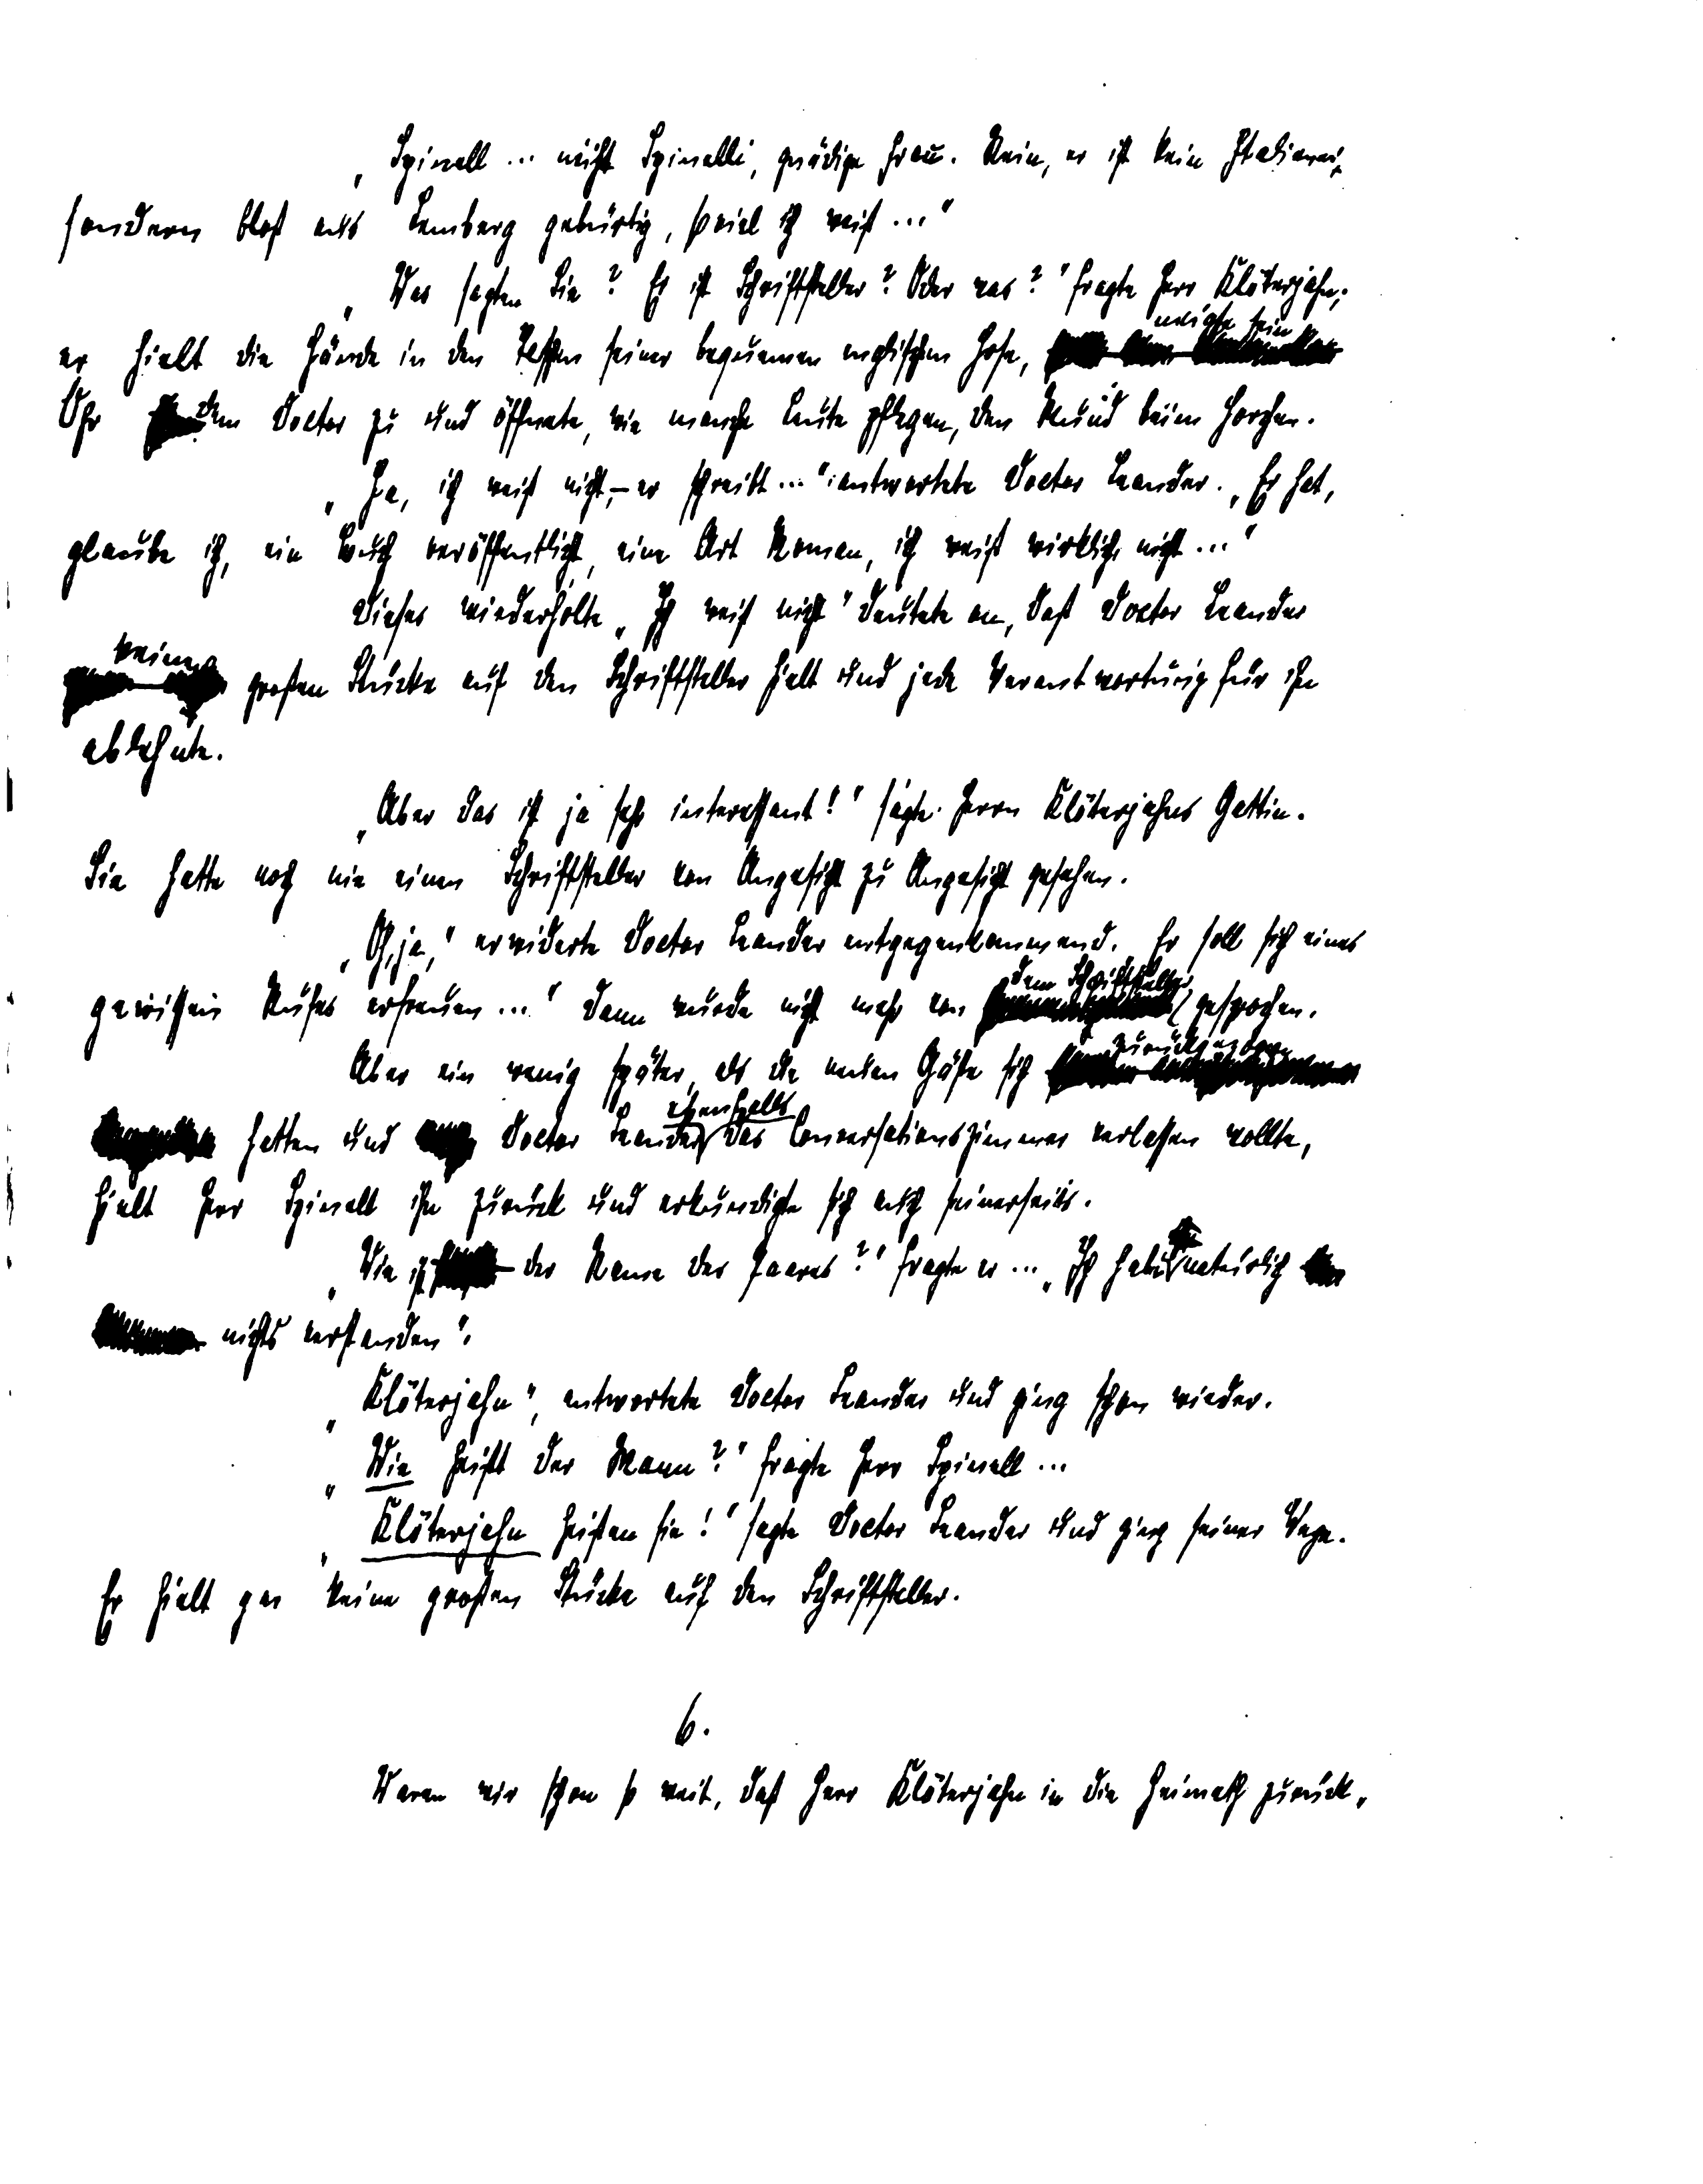 „Spinell ... nicht Spinelli, gnädige Frau. Nein, er ist kein Italiener,
sondern bloß aus Lemberg gebürtig, soviel ich weiß ..."
„Was sagten Sie? Er ist Schriftsteller? Oder was?" fragte Herr Klöterjahn;
er hielt die Hände in den Taschen seiner bequemen englischen Hose, neigte sein
Ohr dem Doctor zu und öffnete, wie manche Leute pflegen, den Mund beim Horchen.
„Ja, ich weiß nicht, – er schreibt ..." antwortete Doctor Leander. „Er hat,
glaube ich, ein Buch veröffentlicht, eine Art Roman, ich weiß wirklich nicht ..."
Dieses wiederholte „Ich weiß nicht" deutete an, daß Doctor Leander
keine großen Stücke auf den Schriftsteller hielt und jede Verantwortung für ihn
ablehnte.
„Aber das ist ja sehr interessant!" sagte Herrn Klöterjahns Gattin.
Sie hatte noch nie einen Schriftsteller von Angesicht zu Angesicht gesehen.
„Oh, ja," erwiderte Doctor Leander entgegenkommend. Er soll sich eines
gewissen Rufes erfreuen ..." Dann wurde nicht mehr von dem Schriftsteller gesprochen.
Aber ein wenig später, als die neuen Gäste sich zurückgezogen
hatten und Doctor Leander ebenfalls das Conversationszimmer verlassen wollte,
hielt Herr Spinell ihn zurück und erkundigte sich auch seinerseits.
„Wie ist der Name des Paares?" fragte er ... „Ich habe natürlich
nichts verstanden".
„Klöterjahn", antwortete Doctor Leander und ging schon wieder.
„Wie heißt der Mann?" fragte Herr Spinell ...
„Klöterjahn heißen sie!" sagte Doctor Leander und ging seiner Wege.
Er hielt gar keine großen Stücke auf den Schriftsteller.
6.
Waren wir schon so weit, daß Herr Klöterjahn in die Heimath zurück-